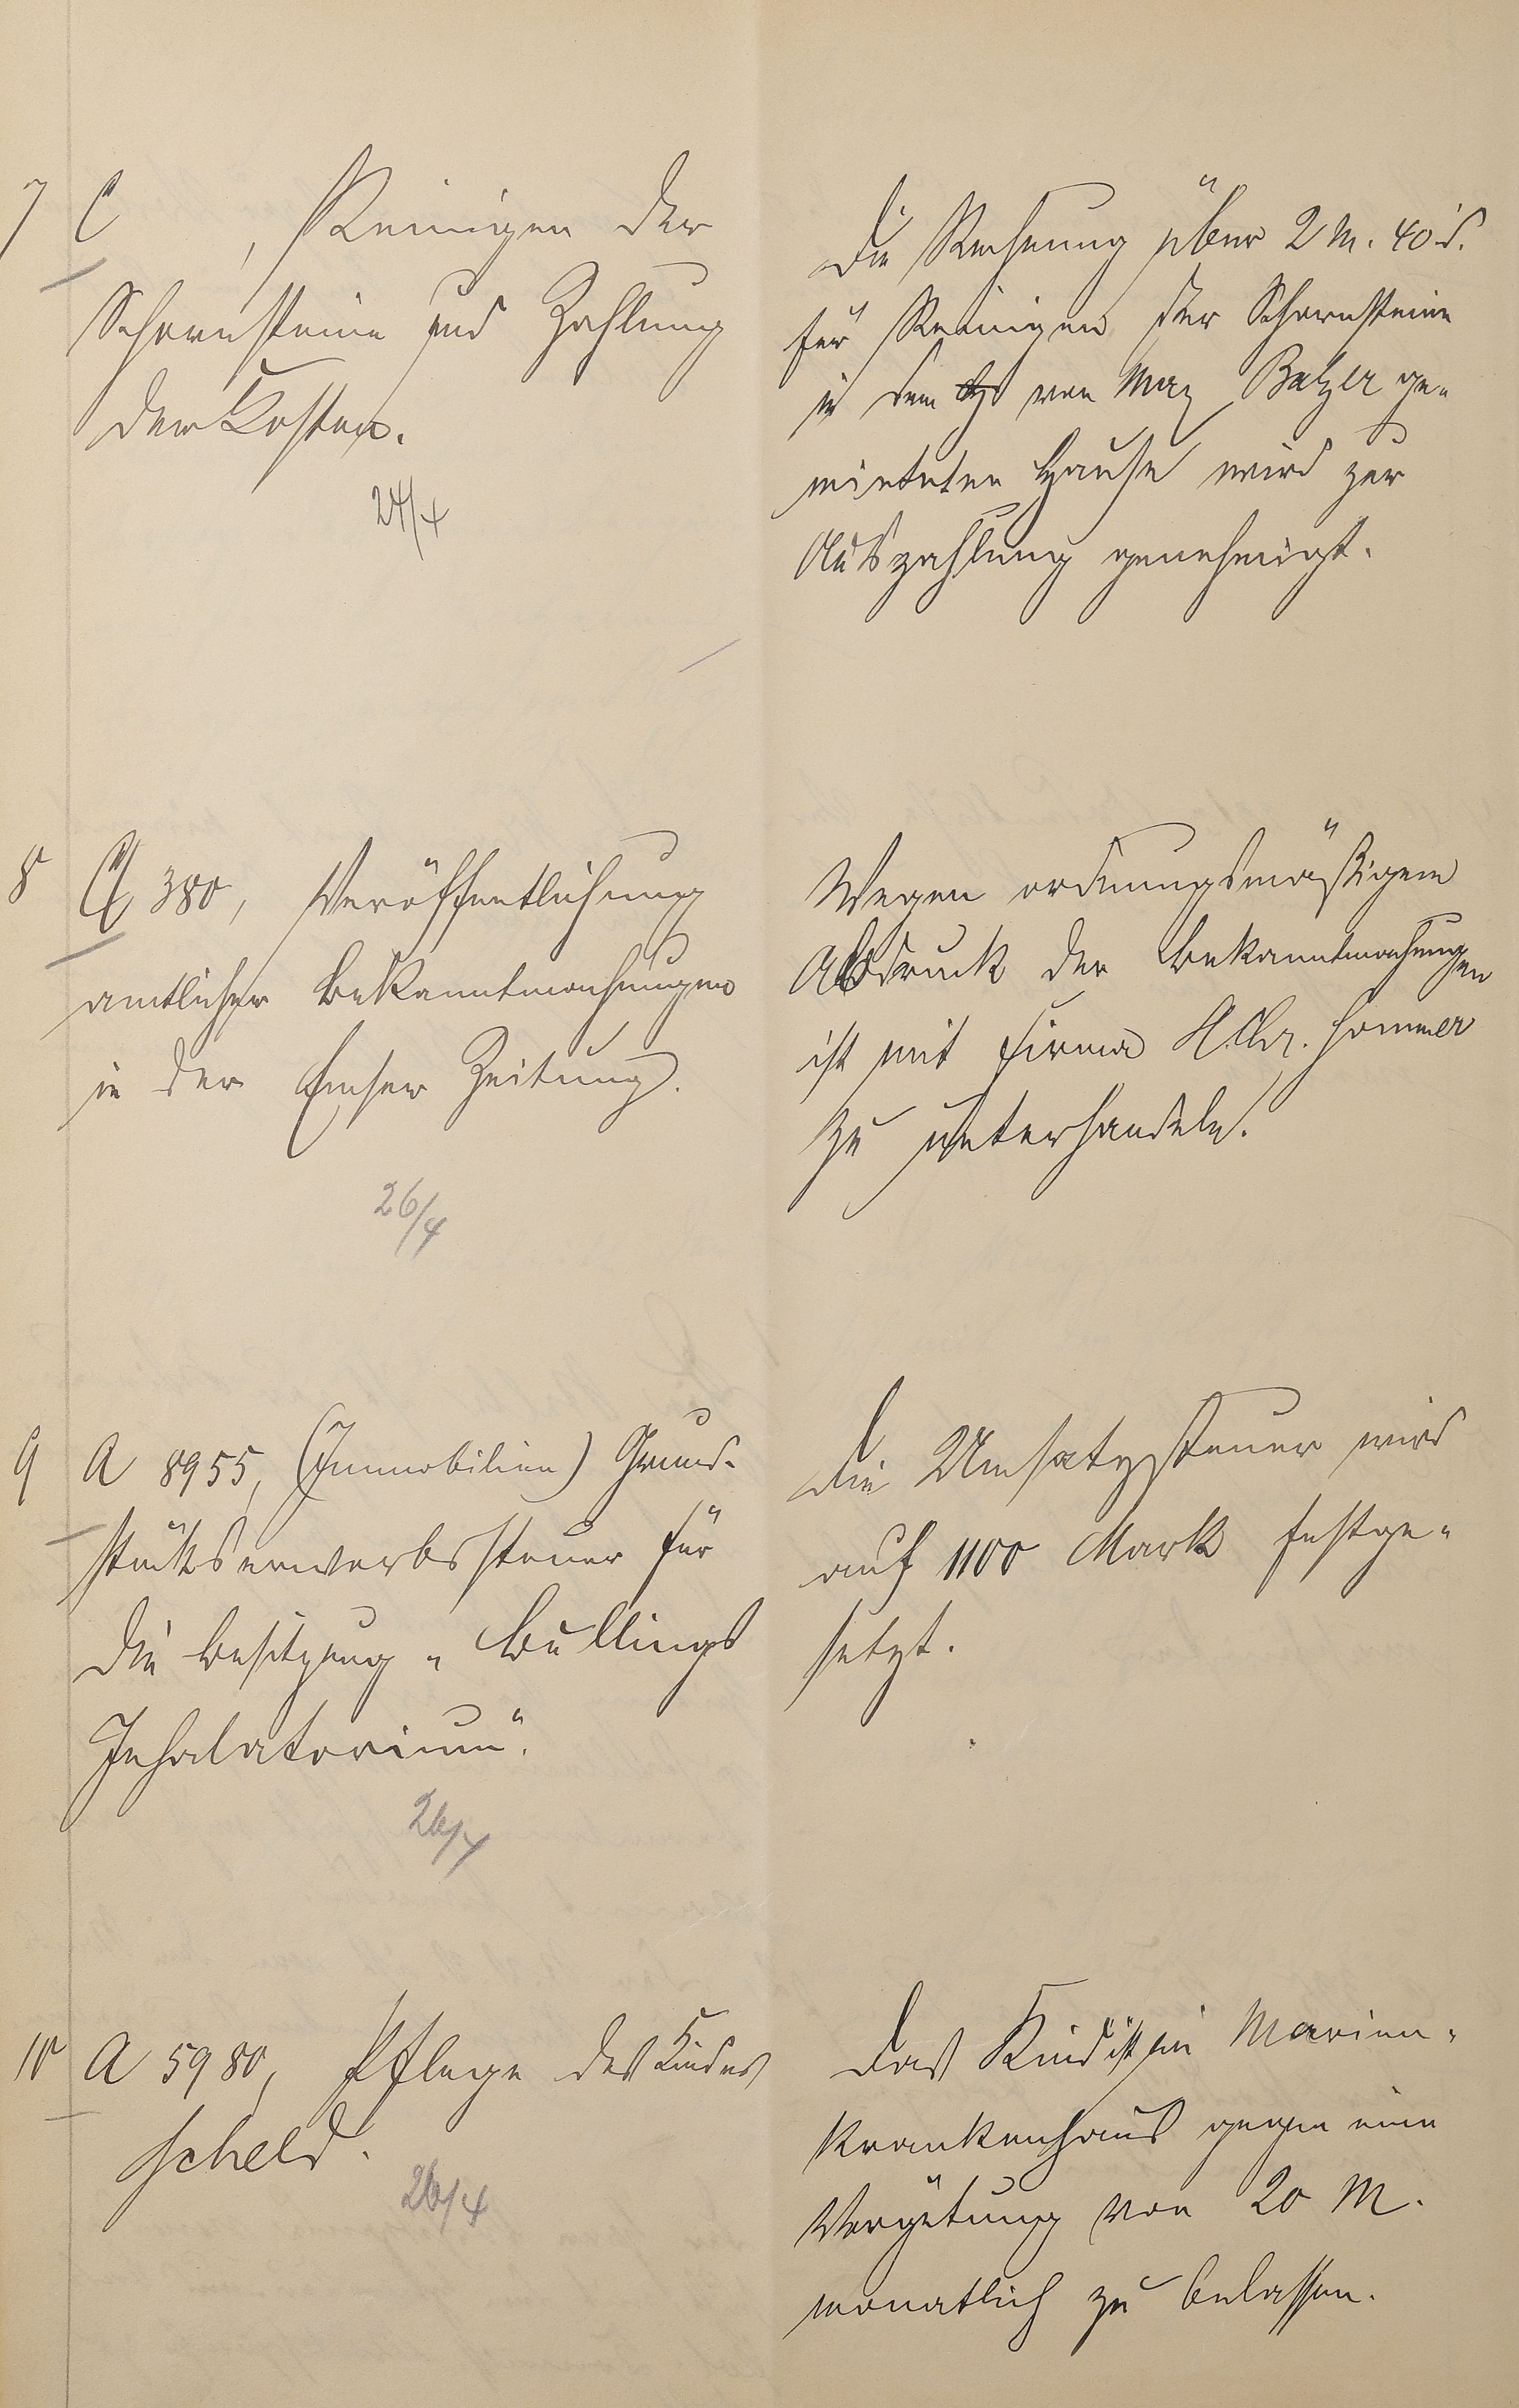 7 C , Reinigen der
Schornsteine und Zahlung
der Kosten.
24/4
Die Rechnung über 2 M. 40 d.
für Reinigen der Schornsteine
in dem von Max Balzer ge-
mieteten Hause wird zur
Auszahlung genehmigt.
8 C 380, Veröffentlichung
amtlicher Bekanntmachungen
in der Emser Zeitung.
26/4
Wegen ordnungsmäßigem
Abdruck der Bekanntmachungen
ist mit Firma H. Chr. Sommer
zu unterhandeln.
9 A 8955, (Immobilien) Grund-
stückserwerbssteuer für
die Besitzung „Bullings
Inhalatorium“.
26/4
Die Umsatzsteuer wird
auf 1100 Mark festge-
setzt.
10 A 5980, Pflege des Kindes
Scheld.
26/4
Das Kind ist im Marien-
krankenhaus gegen eine
Vergütung von 20 M.
monatlich zu belassen.